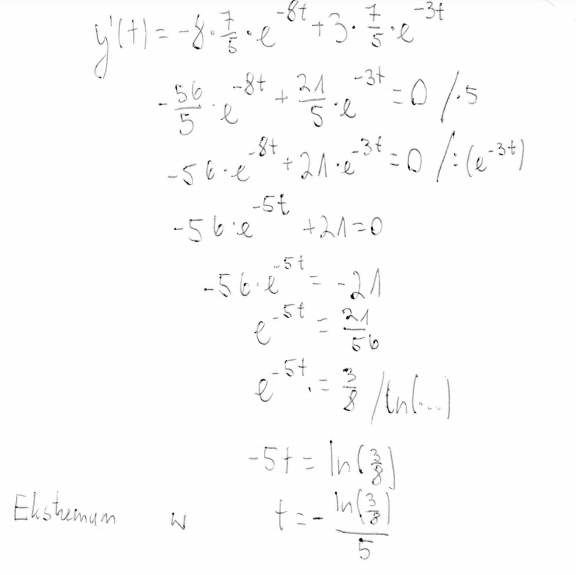 y'(t) = -8 · 7/5 · e^-8t + 3 · 7/5 · e^-3t
-56/5 · e^-8t + 21/5 · e^-3t = 0 / · 5
-56 · e^-8t + 21 · e^-3t = 0 / : (e^-3t)
-56 · e^-5t + 21 = 0
-56 · e^-5t = -21
e^-5t = 21/56
e^-5t · = 3/8 / ln(...)
-5t = ln(3/8)
Ekstremum w t = - ln(3/8)/5